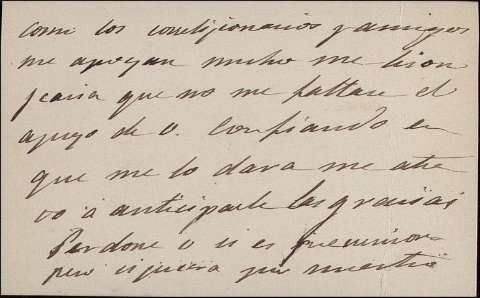 como los correligionarios y amigos
me apoyan mucho me
que no me faltare el
apoyo de V. Confiando en
que me lo dara me atre
vo á anticiparle las gracias
Perdone V si es
pero si quiera por nuestra